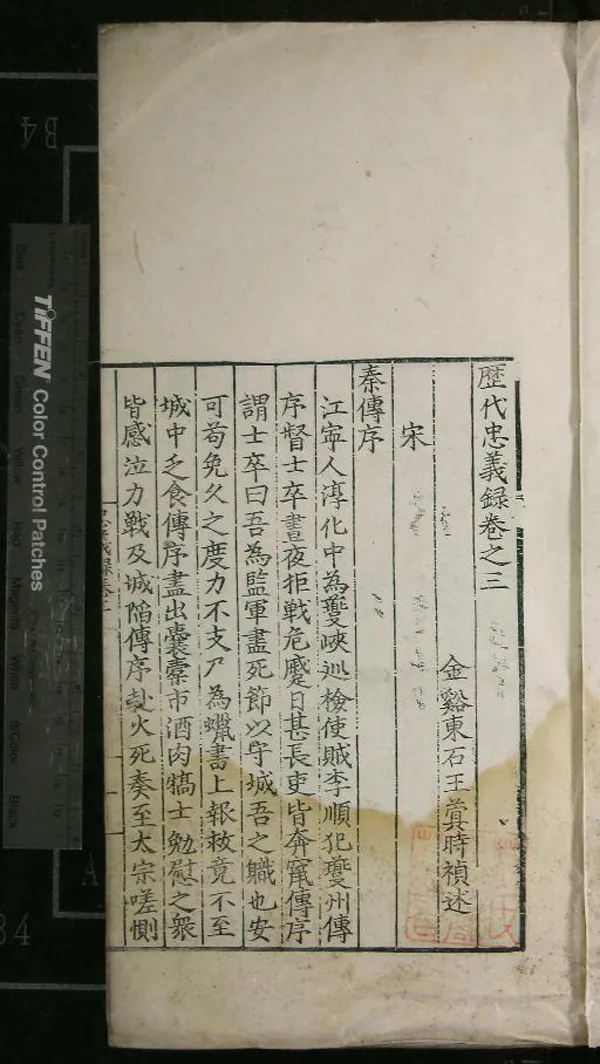 歷代忠義録卷之三
金谿東石王蓂時禎述
宋
秦傳序
江寧人淳化中為夔峽巡檢使賊李順犯夔州傳
序督士卒晝夜拒戰危蹙日甚長吏皆奔竄傳序
謂士卒曰吾為監軍盡死節以守城吾之職也安
可苟免久之度力不支乃為蠟書上報救竟不至
城中乏食傳序盡出囊橐市酒肉犒士勉慰之衆
皆感泣力戰及城陷傳序赴火死奏至太宗嗟惻
TIFFEN Color Control Patches
Blue
Cyan
Green
Yellow
Red
Magenta
White
3/Color
Black
B4
A